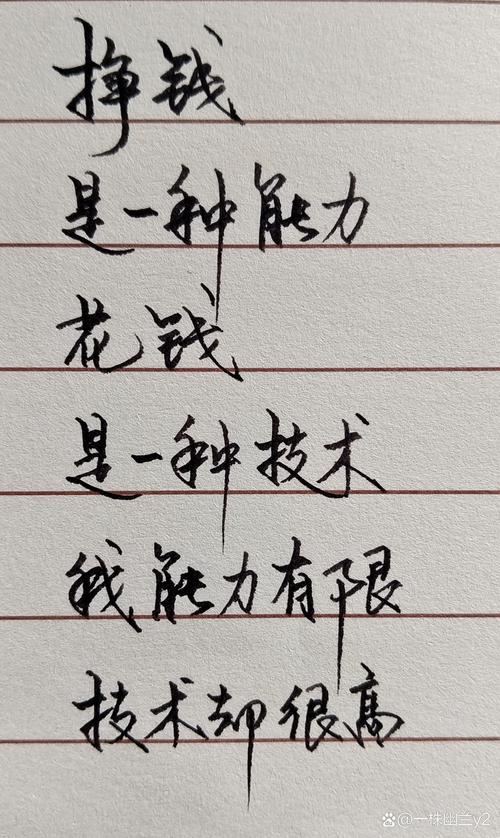 挣钱
是一种能力
花钱
是一种技术
我能力有限
技术却很高
@一株幽兰y2